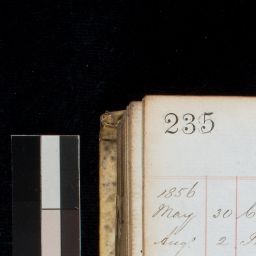 235
1856
May 30
Augt 2